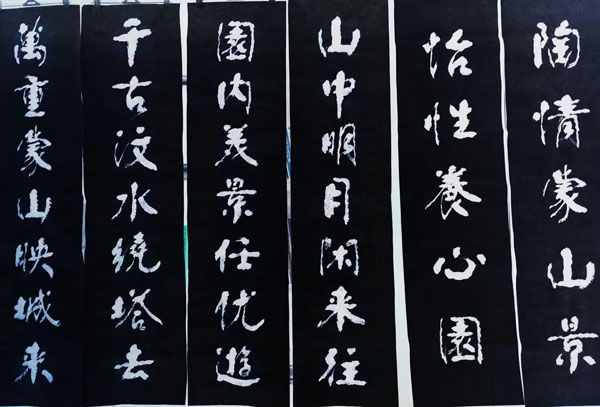 陶情蒙山景
怡性養心園
山中明月闲来往
園内美景任优遊
千古汶水繞塔去
萬重蒙山映城来